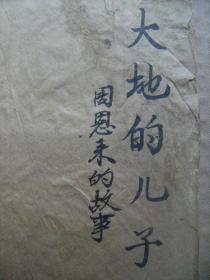 大地的儿子
周恩来的故事